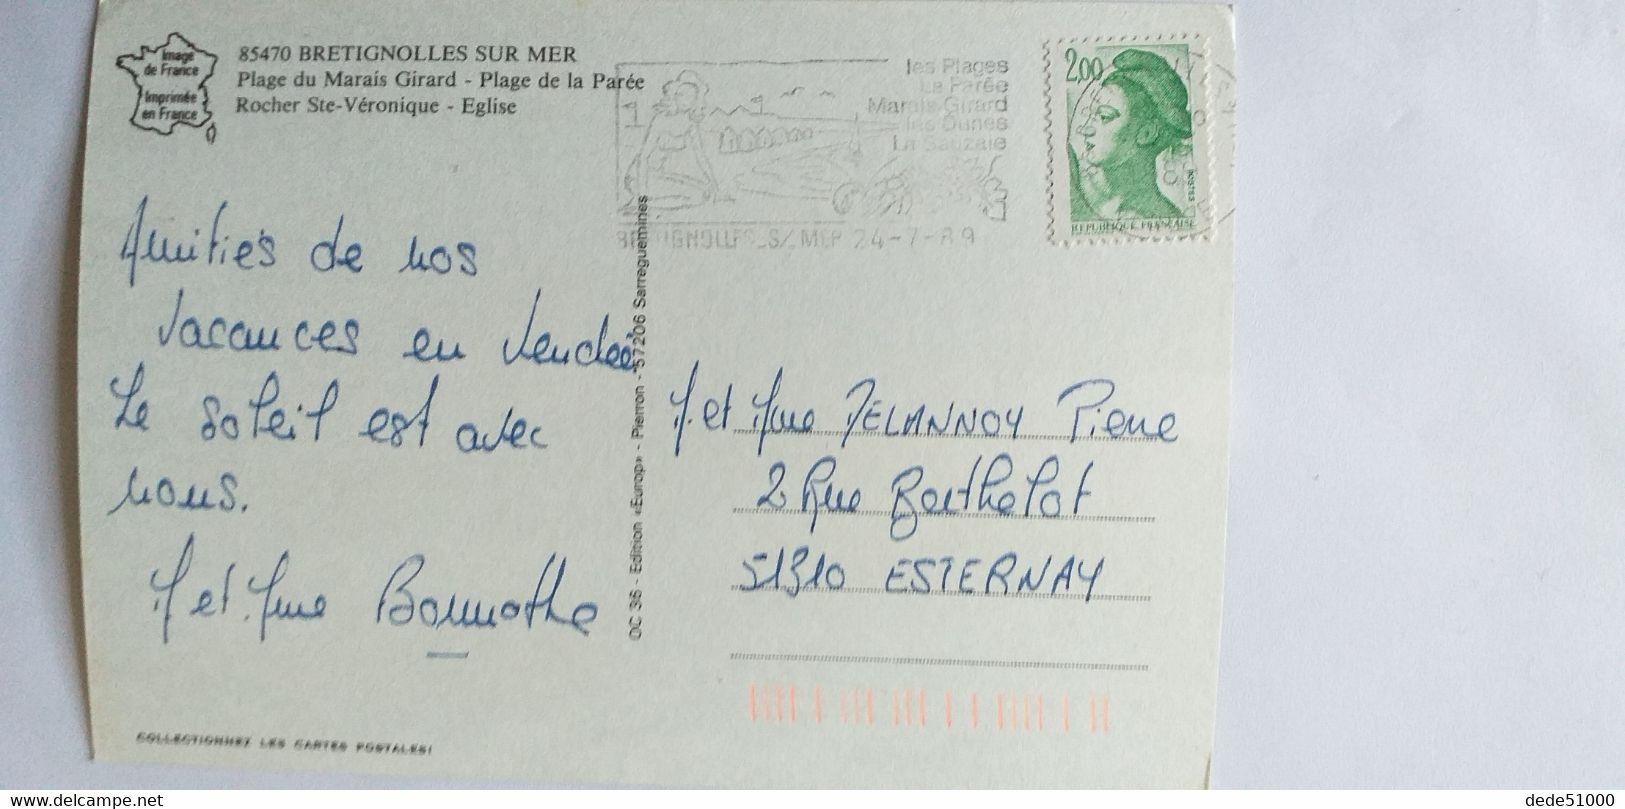 Image
de France
Imprimée
en France
85470 BRETIGNOLLES SUR MER
Plage du Marais Girard - Plage de la Parée
Rocher Ste-Véronique - Eglise
les Plages
La Parée
Marais Girard
les Dunes
La Sauzaie
BRETIGNOLLES S/MER 24-7-89
2,00
POSTES
REPUBLIQUE FRANÇAISE
Amitiés de nos
vacances en Vendée
Le soleil est avec
nous.
M et Mme
OC 36 - Edition «Europ» - Pierron - 57206 Sarreguemines
M. et Mme DELANNOY Pierre
2 Rue Berthelot
51310 ESTERNAY
COLLECTIONNEZ LES CARTES POSTALES!
dede51000